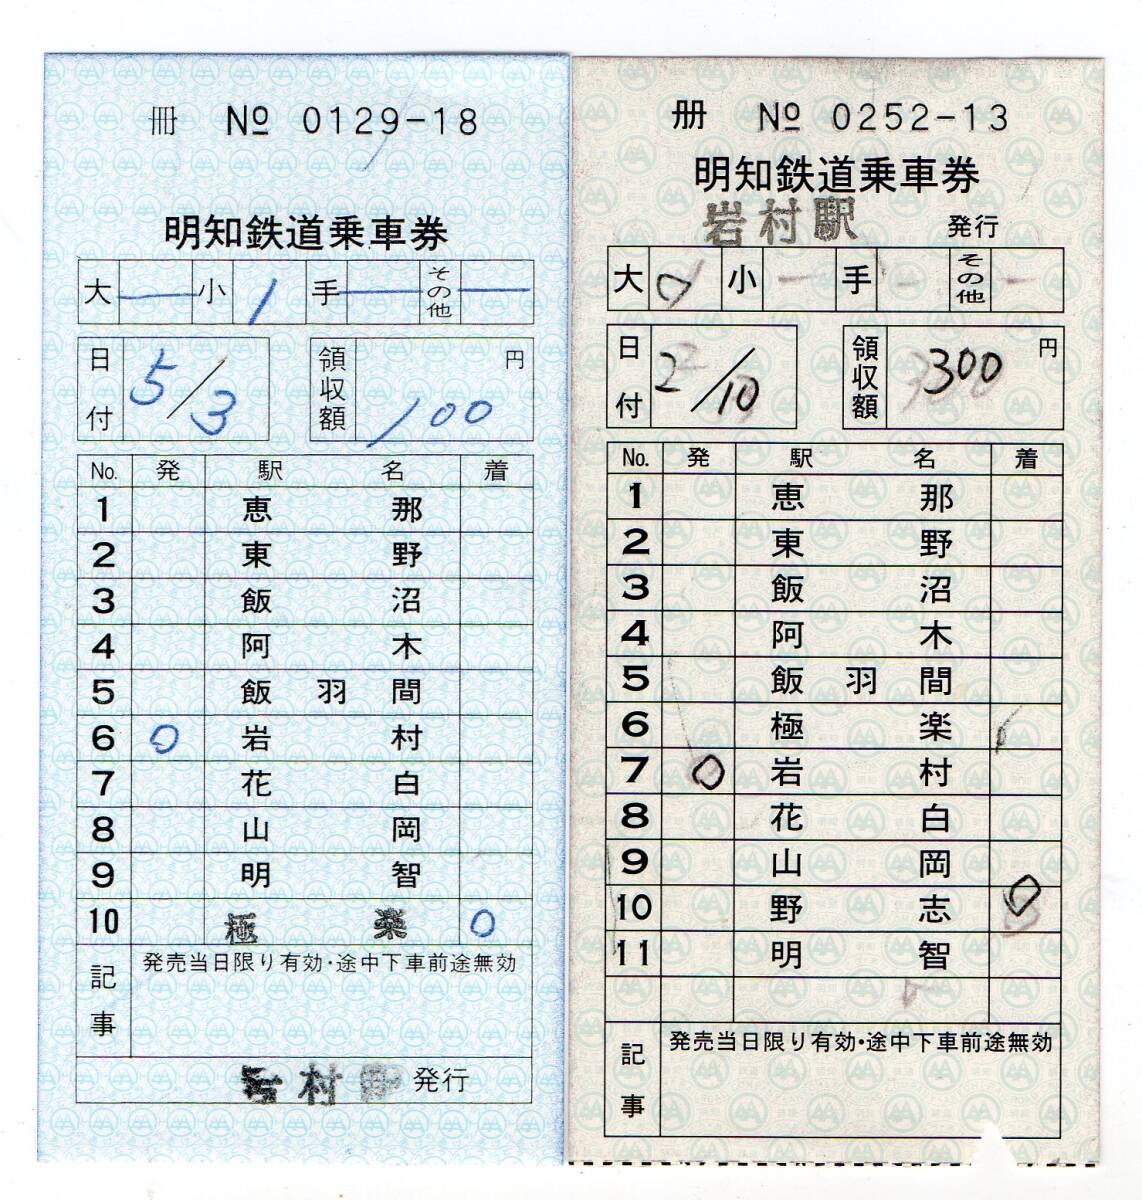 冊 № 0129-18
明知鉄道乗車券
大 — 小 1 手 — その他 —
日付 5/3 領収額 100 円
No. 発 駅名 着
1 恵那
2 東野
3 飯沼
4 阿木
5 飯羽間
6 〇 岩村
7 花白
8 山岡
9 明智
10 極楽 〇
記事 発売当日限り有効・途中下車前途無効
岩村駅 発行
册 № 0252-13
明知鉄道乗車券
岩村駅 発行
大 小 — 手 — その他 —
日付 2/10 領収額 300 円
No. 発 駅名 着
1 恵那
2 東野
3 飯沼
4 阿木
5 飯羽間
6 極楽
7 〇 岩村
8 花白
9 山岡
10 野志 〇
11 明智
記事 発売当日限り有効・途中下車前途無効